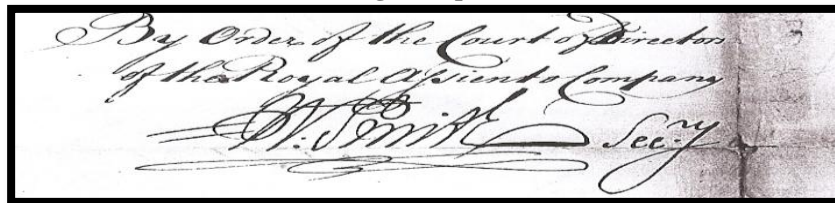 By Order of the Court of Directors
of the Royal Assiento Company
W. Smith Sec.ry